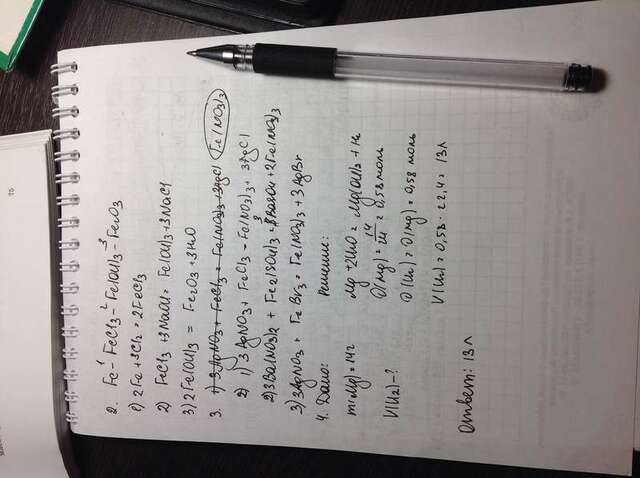 75
2. Fe -¹ FeCl3 -² Fe(OH)3 -³ Fe2O3
1) 2Fe + 3Cl2 = 2FeCl3
2) FeCl3 + 3NaOH = Fe(OH)3 + 3NaCl
3) 2Fe(OH)3 = Fe2O3 + 3H2O
3. 1) 3AgNO3 + FeCl3 = Fe(NO3)3 + 3AgCl Fe(NO3)3
2) 1) 3AgNO3 + FeCl3 = Fe(NO3)3 + 3AgCl
2) 3Ba(NO3)2 + Fe2(SO4)3 = 3BaSO4 + 2Fe(NO3)3
3) 3AgNO3 + FeBr3 = Fe(NO3)3 + 3AgBr
4. Дано: Решение:
m(Mg) = 14г Mg + 2H2O = Mg(OH)2 + H2
V(H2) - ? υ(Mg) = 14/24 = 0,58 моль
υ(H2) = υ(Mg) = 0,58 моль
V(H2) = 0,58 · 22,4 = 13 л
Ответ: 13 л